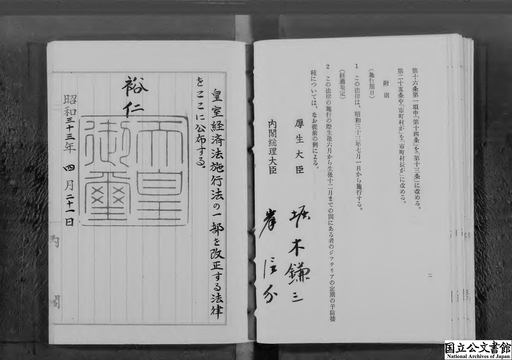 第十六条第一項中「第十四条」を「第十三条」に改める。
第二十五条中「市町村が」を「市町村長が」に改める。
附則
(施行期日)
1 この法律は、昭和三十三年七月一日から施行する。
(経過規定)
2 この法律の施行の際生後六月から生後十二月までの間にある者のジフテリアの定期の予防接
種については、なお従前の例による。
厚生大臣 堀木鎌三
内閣総理大臣 岸信介
二
皇室経済法施行法の一部を改正する法律
をここに公布する。
裕仁
天皇御璽
昭和三十三年四月二十一日
内閣
国立公文書館
National Archives of Japan